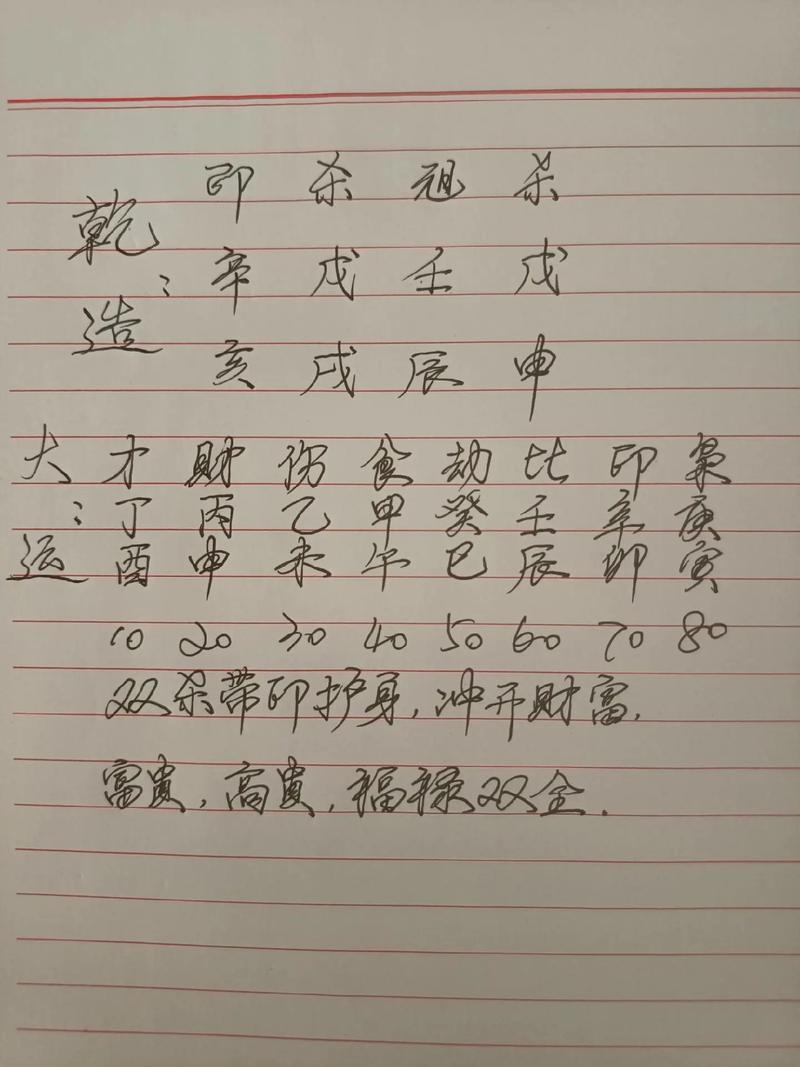 印 杀 祖 杀
乾造：辛 戊 壬 戊
亥 戌 辰 申
大运：才 财 伤 食 劫 比 印 枭
丁 丙 乙 甲 癸 壬 辛 庚
酉 申 未 午 巳 辰 卯 寅
10 20 30 40 50 60 70 80
双杀带印护身，冲开财富.
富贵，高贵，福禄双全.